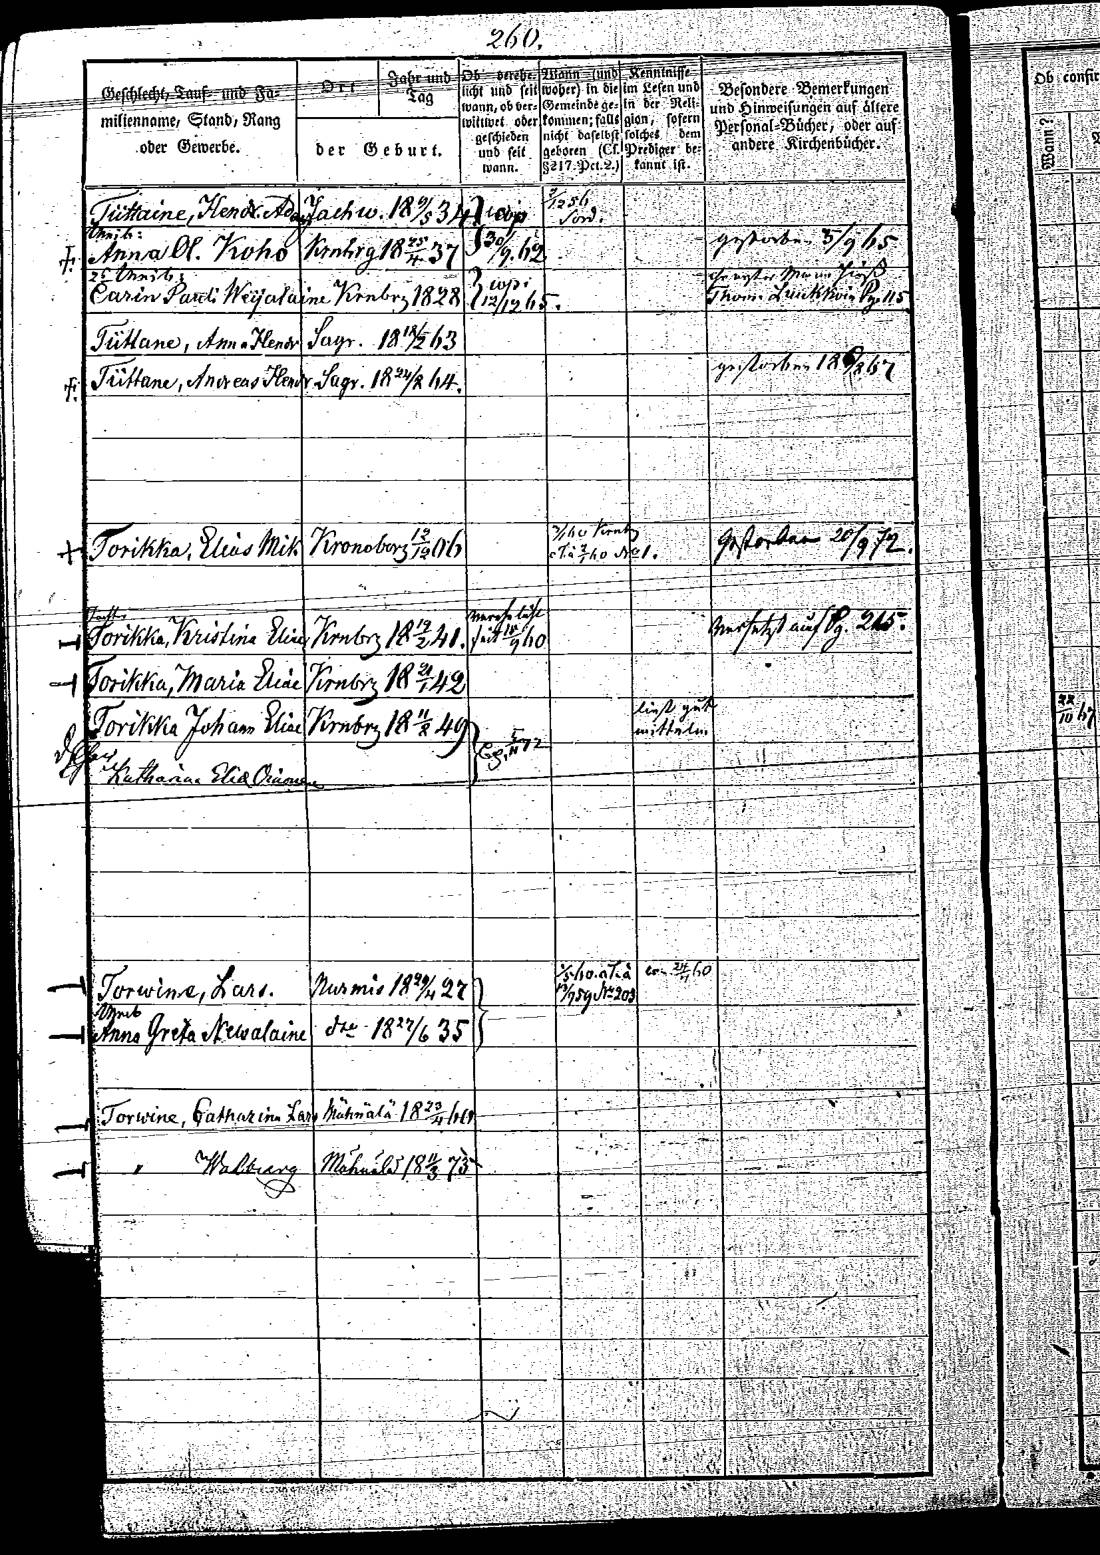 260.
Geschlecht, Tauf- und Fa-
milienname, Stand, Rang
oder Gewerbe.
Ort
Jahr und
Tag
der Geburt.
Ob verehe-
licht und seit
wann, ob ver-
wittwet oder
geschieden
und seit
wann.
Wann (und
woher) in die
Gemeinde ge-
kommen; falls
nicht daselbst
geboren (Cf.
§217. Pct.2.)
Kenntnisse
im Lesen und
in der Reli-
gion, sofern
solches dem
Prediger be-
kannt ist.
Besondere Bemerkungen
und Hinweisungen auf ältere
Personal-Bücher, oder auf
andere Kirchenbücher.
Ob confir
Wann?
Tüttaine, Hendr. Jachw. 18 9/5 34
Anna Ol. Koho Krnbrg 18 25/4 37 30/9. 62 gestorben 5/9 65
Carin Pauli Weijalaine Krnbrg 1828 cop: 12/12 65. Pg. 115
Tüttane, Anna Hendr Sagr. 18 18/2 63
Tüttane, Andreas Hendr. Sagr. 18 24/8 64. gestorben
Torikka, Elias Mik Kronoborg 12/12 06 No 1. Gestorben 20/9 72.
Torikka, Kristina Eliae Krnbrg 18 19/2 41. verehelicht seit 60 versetzt auf Pg. 215.
Torikka, Maria Eliae Krnbrg 18 21/1 42
Torikka Johann Eliae Krnbrg 18 11/2 49 liest gut
mittelm
22/10 67
Katharina Eliae
Torwine, Lars. Nurmis 18 29/4 27 No 203
Anna Greta Newalaine dto 18 27/6 35
Torwine, Catharina Lars Mähnälä 18 23/4
" Walburg Mähnälä 18 11/3 75